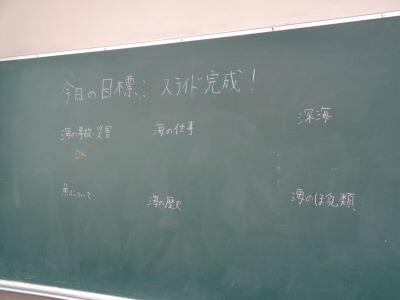 今日の目標： スライド完成！
海の事故・災害
海の仕事
深海
OK
魚について
海の歴史
海のほ乳類